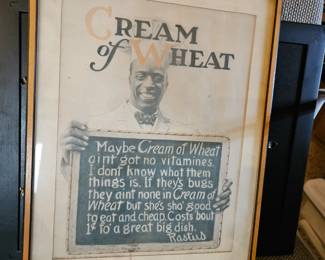 CREAM
of WHEAT
Maybe Cream of Wheat
aint got no vitamines.
I dont know what them
things is. If they's bugs
they aint none in Cream of
Wheat but she's sho' good
to eat and cheap. Costs bout
1¢ fo' a great big dish.
Rastus